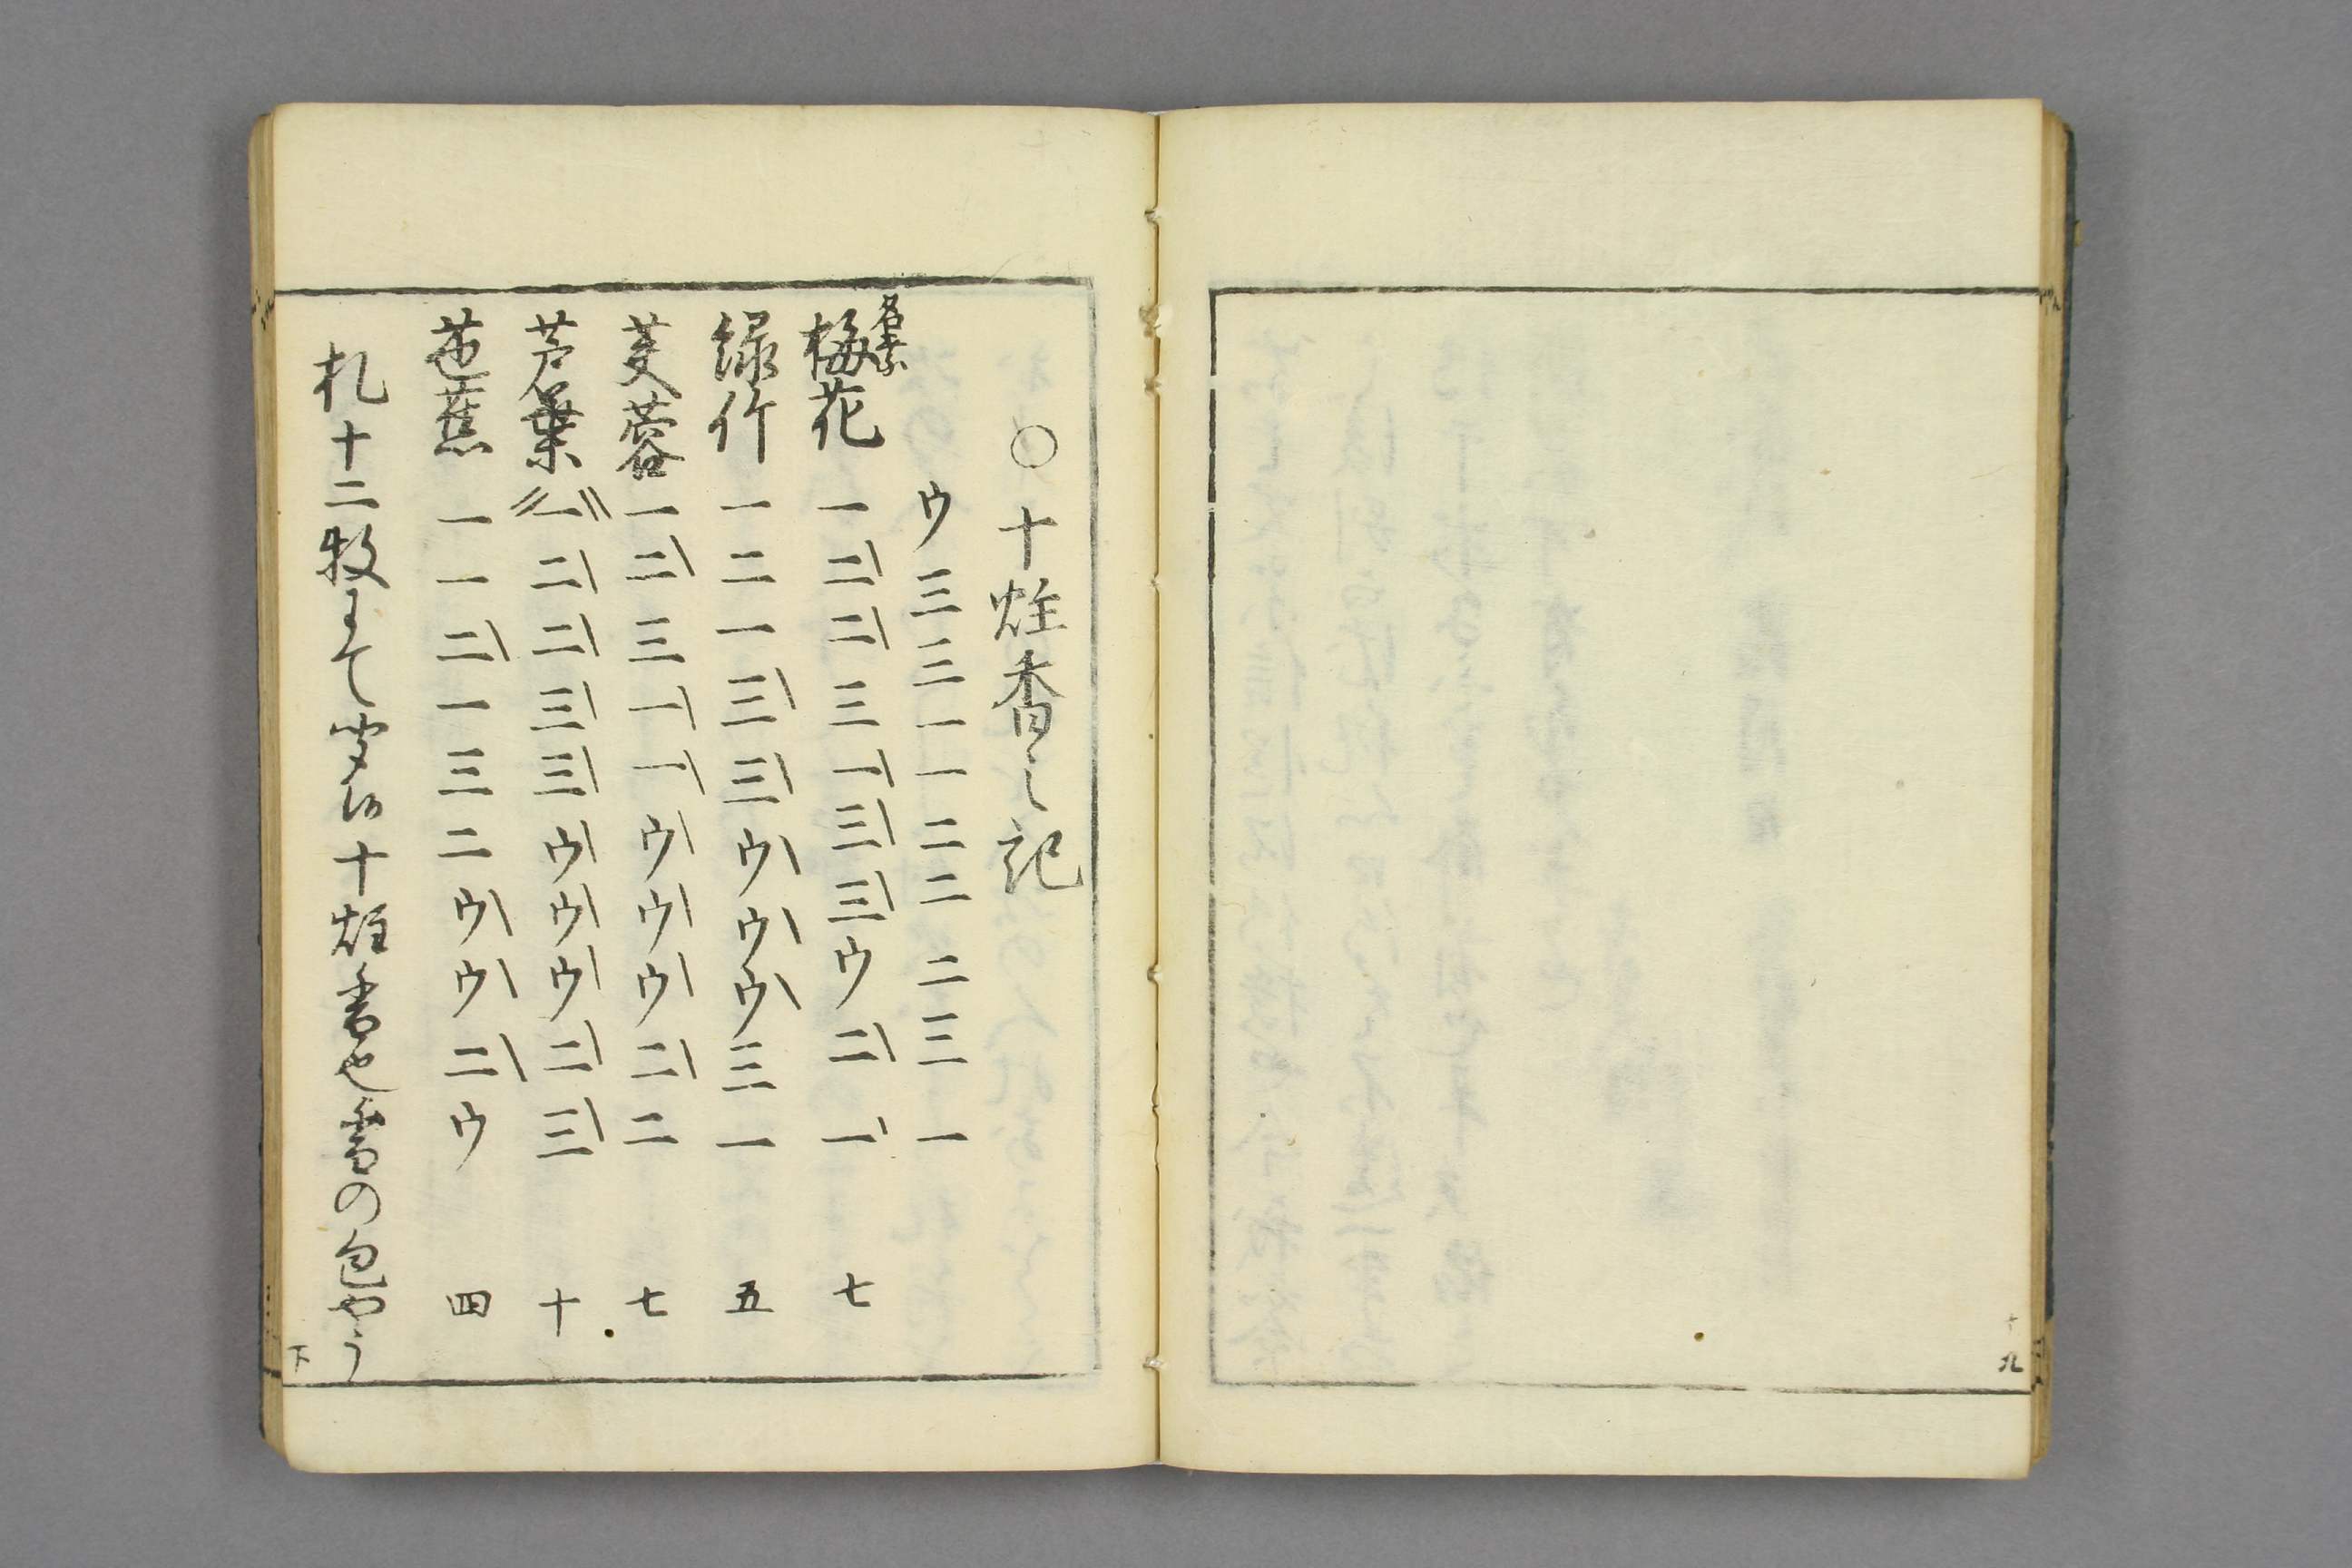 十九
〇十炷香之記
ウ三三一一二二二三一
名乗
梅花 一二二三一三三ウ二一 七
緑竹 一二一三三ウウウ三一 五
芙蓉 一二三一一ウウウ二二 七
芦葉 一二二三三ウウウ二三 十
芭蕉 一一二一三二ウウ二ウ 四
札十二枚にて聞は十炷香也香の包やう
下